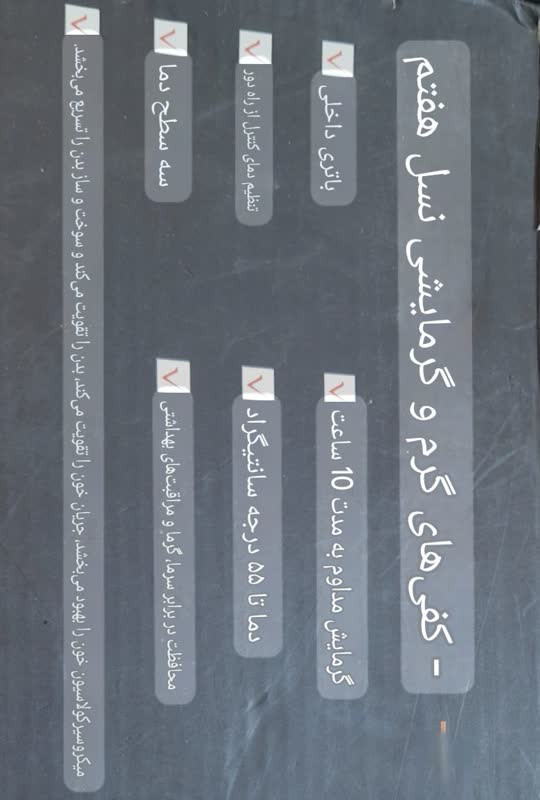 - کفی‌های گرم و گرمایشی نسل هفتم
گرمایش مداوم به مدت 10 ساعت
باتری داخلی
دما تا ۵۵ درجه سانتیگراد
تنظیم دمای کنترل از راه دور
محافظت در برابر سرما، گرما و مراقبت‌های بهداشتی
سه سطح دما
میکروسیرکولاسیون خون را بهبود می‌بخشد، جریان خون را تقویت می‌کند، بدن را تقویت می‌کند و سوخت و ساز بدن را تسریع می‌بخشد.